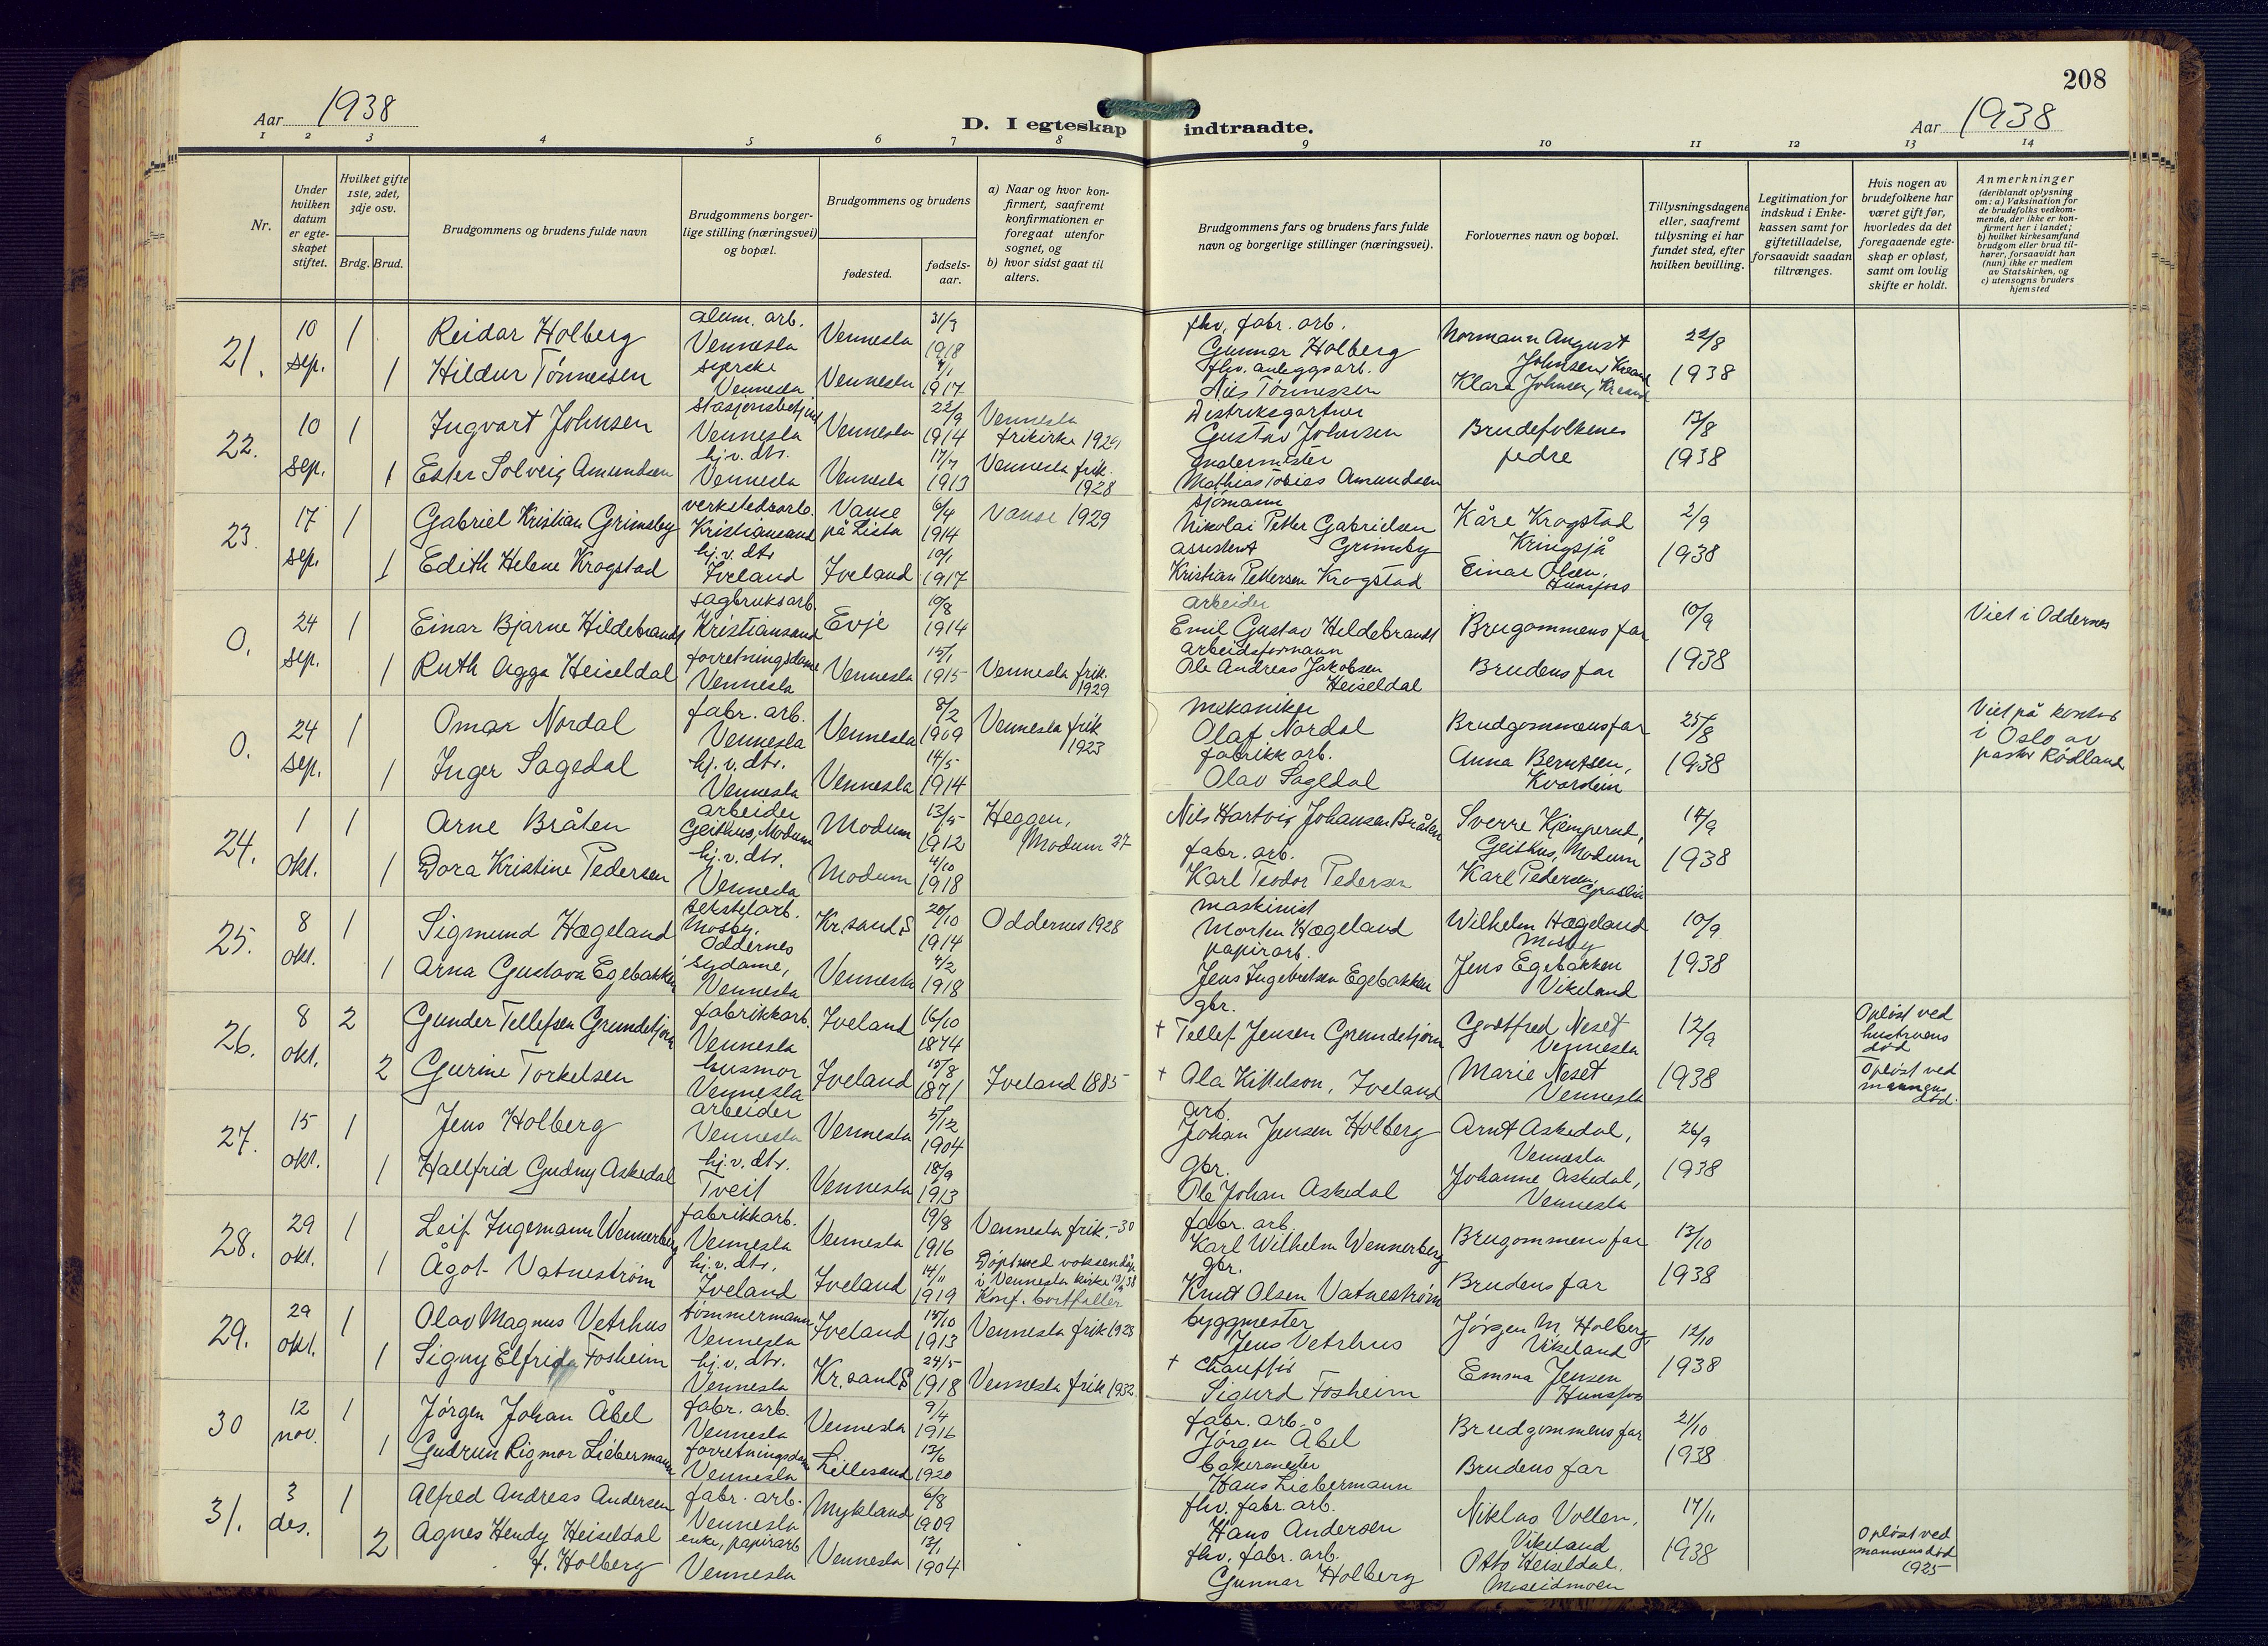 208
Aar 1938
D. I egteskap indtraadte.
Aar 1938
1 2 3 4 5 6 7 8 9 10 11 12 13 14
Nr.
Under hvilken datum er egteskapet stiftet.
Hvilket gifte 1ste, 2det, 3dje osv.
Brdg. Brud.
Brudgommens og brudens fulde navn
Brudgommens borgerlige stilling (næringsvei) og bopæl.
Brudgommens og brudens
fødested.
fødselsaar.
a) Naar og hvor konfirmert, saafremt konfirmationen er foregaat utenfor sognet, og
b) hvor sidst gaat til alters.
Brudgommens fars og brudens fars fulde navn og borgerlige stillinger (næringsvei).
Forlovernes navn og bopæl.
Tillysningsdagene eller, saafremt tillysning ei har fundet sted, efter hvilken bevilling.
Legitimation for indskud i Enkekassen samt for giftetilladelse, forsaavidt saadan tiltrænges.
Hvis nogen av brudefolkene har været gift før, hvorledes da det foregaaende egteskap er opløst, samt om lovlig skifte er holdt.
Anmerkninger
(deriblandt oplysning om: a) Vaksination for de brudefolks vedkommende, der ikke er konfirmert her i landet; b) hvilket kirkesamfund brudgom eller brud tilhører, forsaavidt han (hun) ikke er medlem av Statskirken, og c) utensogns bruders hjemsted
21. 10 sep. 1 Reidar Holberg alum. arb. Vennesla Vennesla 31/3 1918 fhv. fabr. arb. Gunnar Holberg Normann August Johnsen, Krsand 22/8
1 Hildur Tønnessen syerske Vennesla Vennesla 1917 fhv. anleggsarb. Nils Tønnessen Klara Johnsen, Krsand 1938
22. 10 sep. 1 Ingvart Johnsen stasjonsbetjent Vennesla Vennesla 22/9 1914 Vennesla frikirke 1929 Distriksgartner Gustav Johnsen Brudefolkenes 13/8
1 Ester Solveig Amundsen hj.v. dtr. Vennesla Vennesla 17/7 1913 Vennesla frik. 1928 Mathias Tobias Amundsen fedre 1938
23. 17 sep. 1 Gabriel Kristian Grimsby verkstedsarb. Kristiansand Vanse på Lista 6/4 1914 Vanse 1929 sjømann Nikolai Petter Gabrielsen Grimsby Kåre Krogstad Kringsjå 2/9
1 Edith Helene Krogstad hj.v. dtr Iveland Iveland 10/1 1917 assistent Kristian Pettersen Krogstad Einar Olsen, Hunsfoss 1938
0. 24 sep. 1 Einar Bjarne Hildebrandt sagbruksarb. Kristiansand Evje 10/8 1914 arbeider Emil Gustav Hildebrandt Brugommens far 10/9 Viet i Oddernes
1 Ruth Agga Heiseldal forretningsdame Vennesla Vennesla 15/1 1915 Vennesla frik. 1929 arbeidsformann Ole Andreas Jakobsen Heiseldal Brudens far 1938
0. 24 sep. 1 Omar Nordal fabr. arb. Vennesla Vennesla 8/2 1909 Vennesla frik 1923 mekaniker Olaf Nordal Brudgommens far 25/8 Viet på kontor i Oslo av pastor Rødland
1 Inger Sagedal hj. v. dtr. Vennesla Vennesla 14/5 1914 fabrikk arb. Olav Sagedal Anna Berntsen, Kvarstein 1938
24. 1 okt. 1 Arne Bråten arbeider Geithus, Modum Modum 13/5 1912 Heggen, Modum 27 Nils Hartvig Johansen Bråten Sverre Kjemperud, Geithus, Modum 17/9
1 Dora Kristine Pedersen hj. v. dtr. Vennesla Modum 4/10 1918 fabr. arb. Karl Teodor Pedersen Karl Pedersen, 1938
25. 8 okt. 1 Sigmund Hægeland tekstilarb. Mosby, Oddernes Kr.sand S 20/10 1914 Oddernes 1928 maskinist Morten Hægeland Wilhelm Hægeland Mosby 10/9
1 Arna Gustava Egebakken sydame, Vennesla Vennesla 4/2 1918 papirarb. Jens Ingebretsen Egebakken Jens Egebakken Vikeland 1938
26. 8 okt. 2 Gunder Tellefsen Grundetjern fabrikkarb. Vennesla Iveland 16/10 1874 gbr. † Tellef Jensen Grundetjern Godtfred Neset Vennesla 12/9 Opløst ved hustruens død
2 Gurine Torkelsen husmor Vennesla Iveland 15/8 1871 Iveland 1885 † Ola Kittelson, Iveland Marie Neset Vennesla 1938 Opløst ved mannens død.
27. 15 okt. 1 Jens Holberg arbeider Vennesla Vennesla 5/12 1904 arb. Johan Jensen Holberg Arnt Askedal, Vennesla 26/9
1 Hallfrid Gudny Askedal hj. v. dtr. Tveit Vennesla 18/9 1913 gbr. Ole Johan Askedal Johanne Askedal, Vennesla 1938
28. 29 okt. 1 Leif Ingemann Wennerberg fabrikkarb. Vennesla Vennesla 19/8 1916 Vennesla frik. -30 fabr. arb. Karl Wilhelm Wennerberg Brugommens far 13/10
1 Ågot Vatnestrøm hj. v. dtr. Iveland Iveland 14/11 1919 Døpt med voksendåp i Vennesla kirke Konf. bortfaller gbr. Knut Olsen Vatnestrøm Brudens far 1938
29. 29 okt. 1 Olav Magnus Vetrhus tømmermann Vennesla Iveland 15/10 1913 Vennesla frik 1928 byggmester Jens Vetrhus Jørgen M. Holberg, Vikeland 12/10
1 Signy Elfrida Fosheim hj. v. dtr. Vennesla Kr. sand S 24/5 1918 Vennesla frik 1932 † chauffør Sigurd Fosheim Emma Jensen Hunsfos 1938
30 12 nov. 1 Jørgen Johan Åbel fabr. arb. Vennesla Vennesla 9/4 1916 fabr. arb. Jørgen Åbel Brudgommens far 21/10
1 Gudrun Rigmor Liebermann forretningsdame Vennesla Lillesand 13/6 1920 bakermester Hans Liebermann Brudens far 1938
31. 3 des. 1 Alfred Andreas Andersen fabr. arb. Vennesla Mykland 6/8 1909 fhv. fabr. arb. Hans Andersen Niklas Vollen, Vikeland 17/11
2 Agnes Hendy Heiseldal f. Holberg enke, papirarb Vennesla Vennesla 13/1 1904 fhv. fabr. arb. Gunnar Holberg Otto Heiseldal. Moseidmoen 1938 Opløst ved mannens død 1925